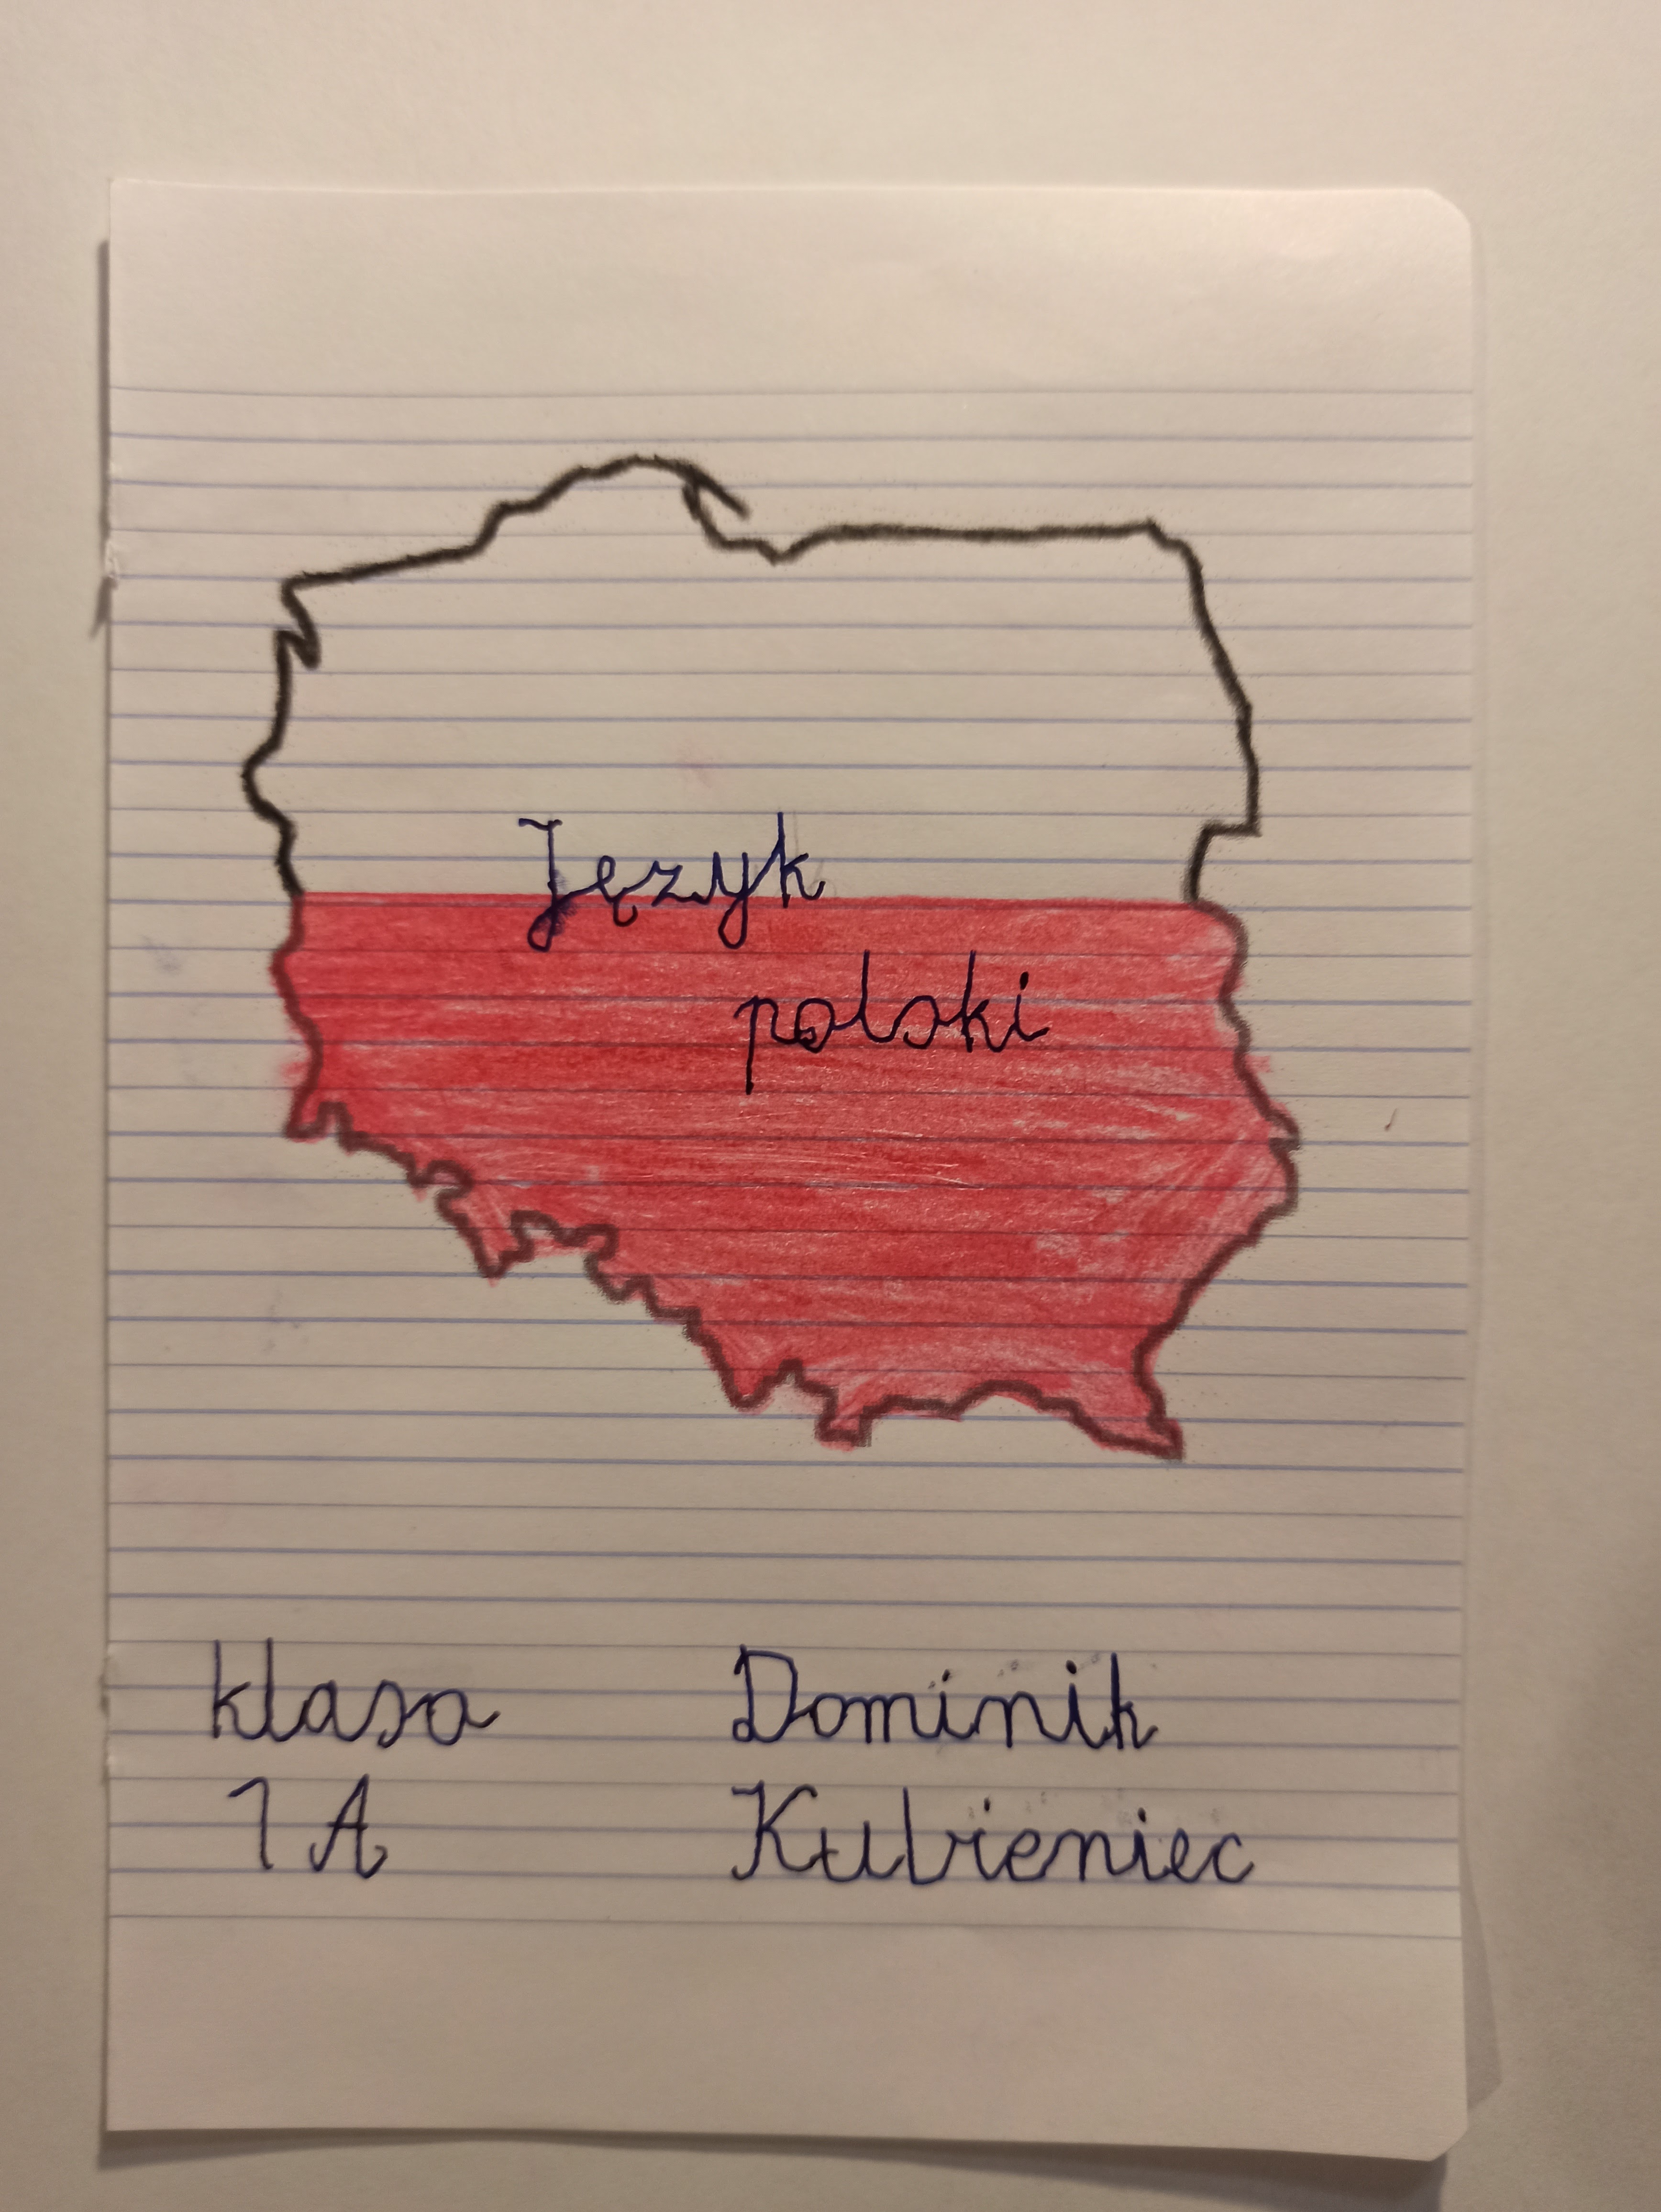 Język
polski
klasa
1 A
Dominik
Kubieniec